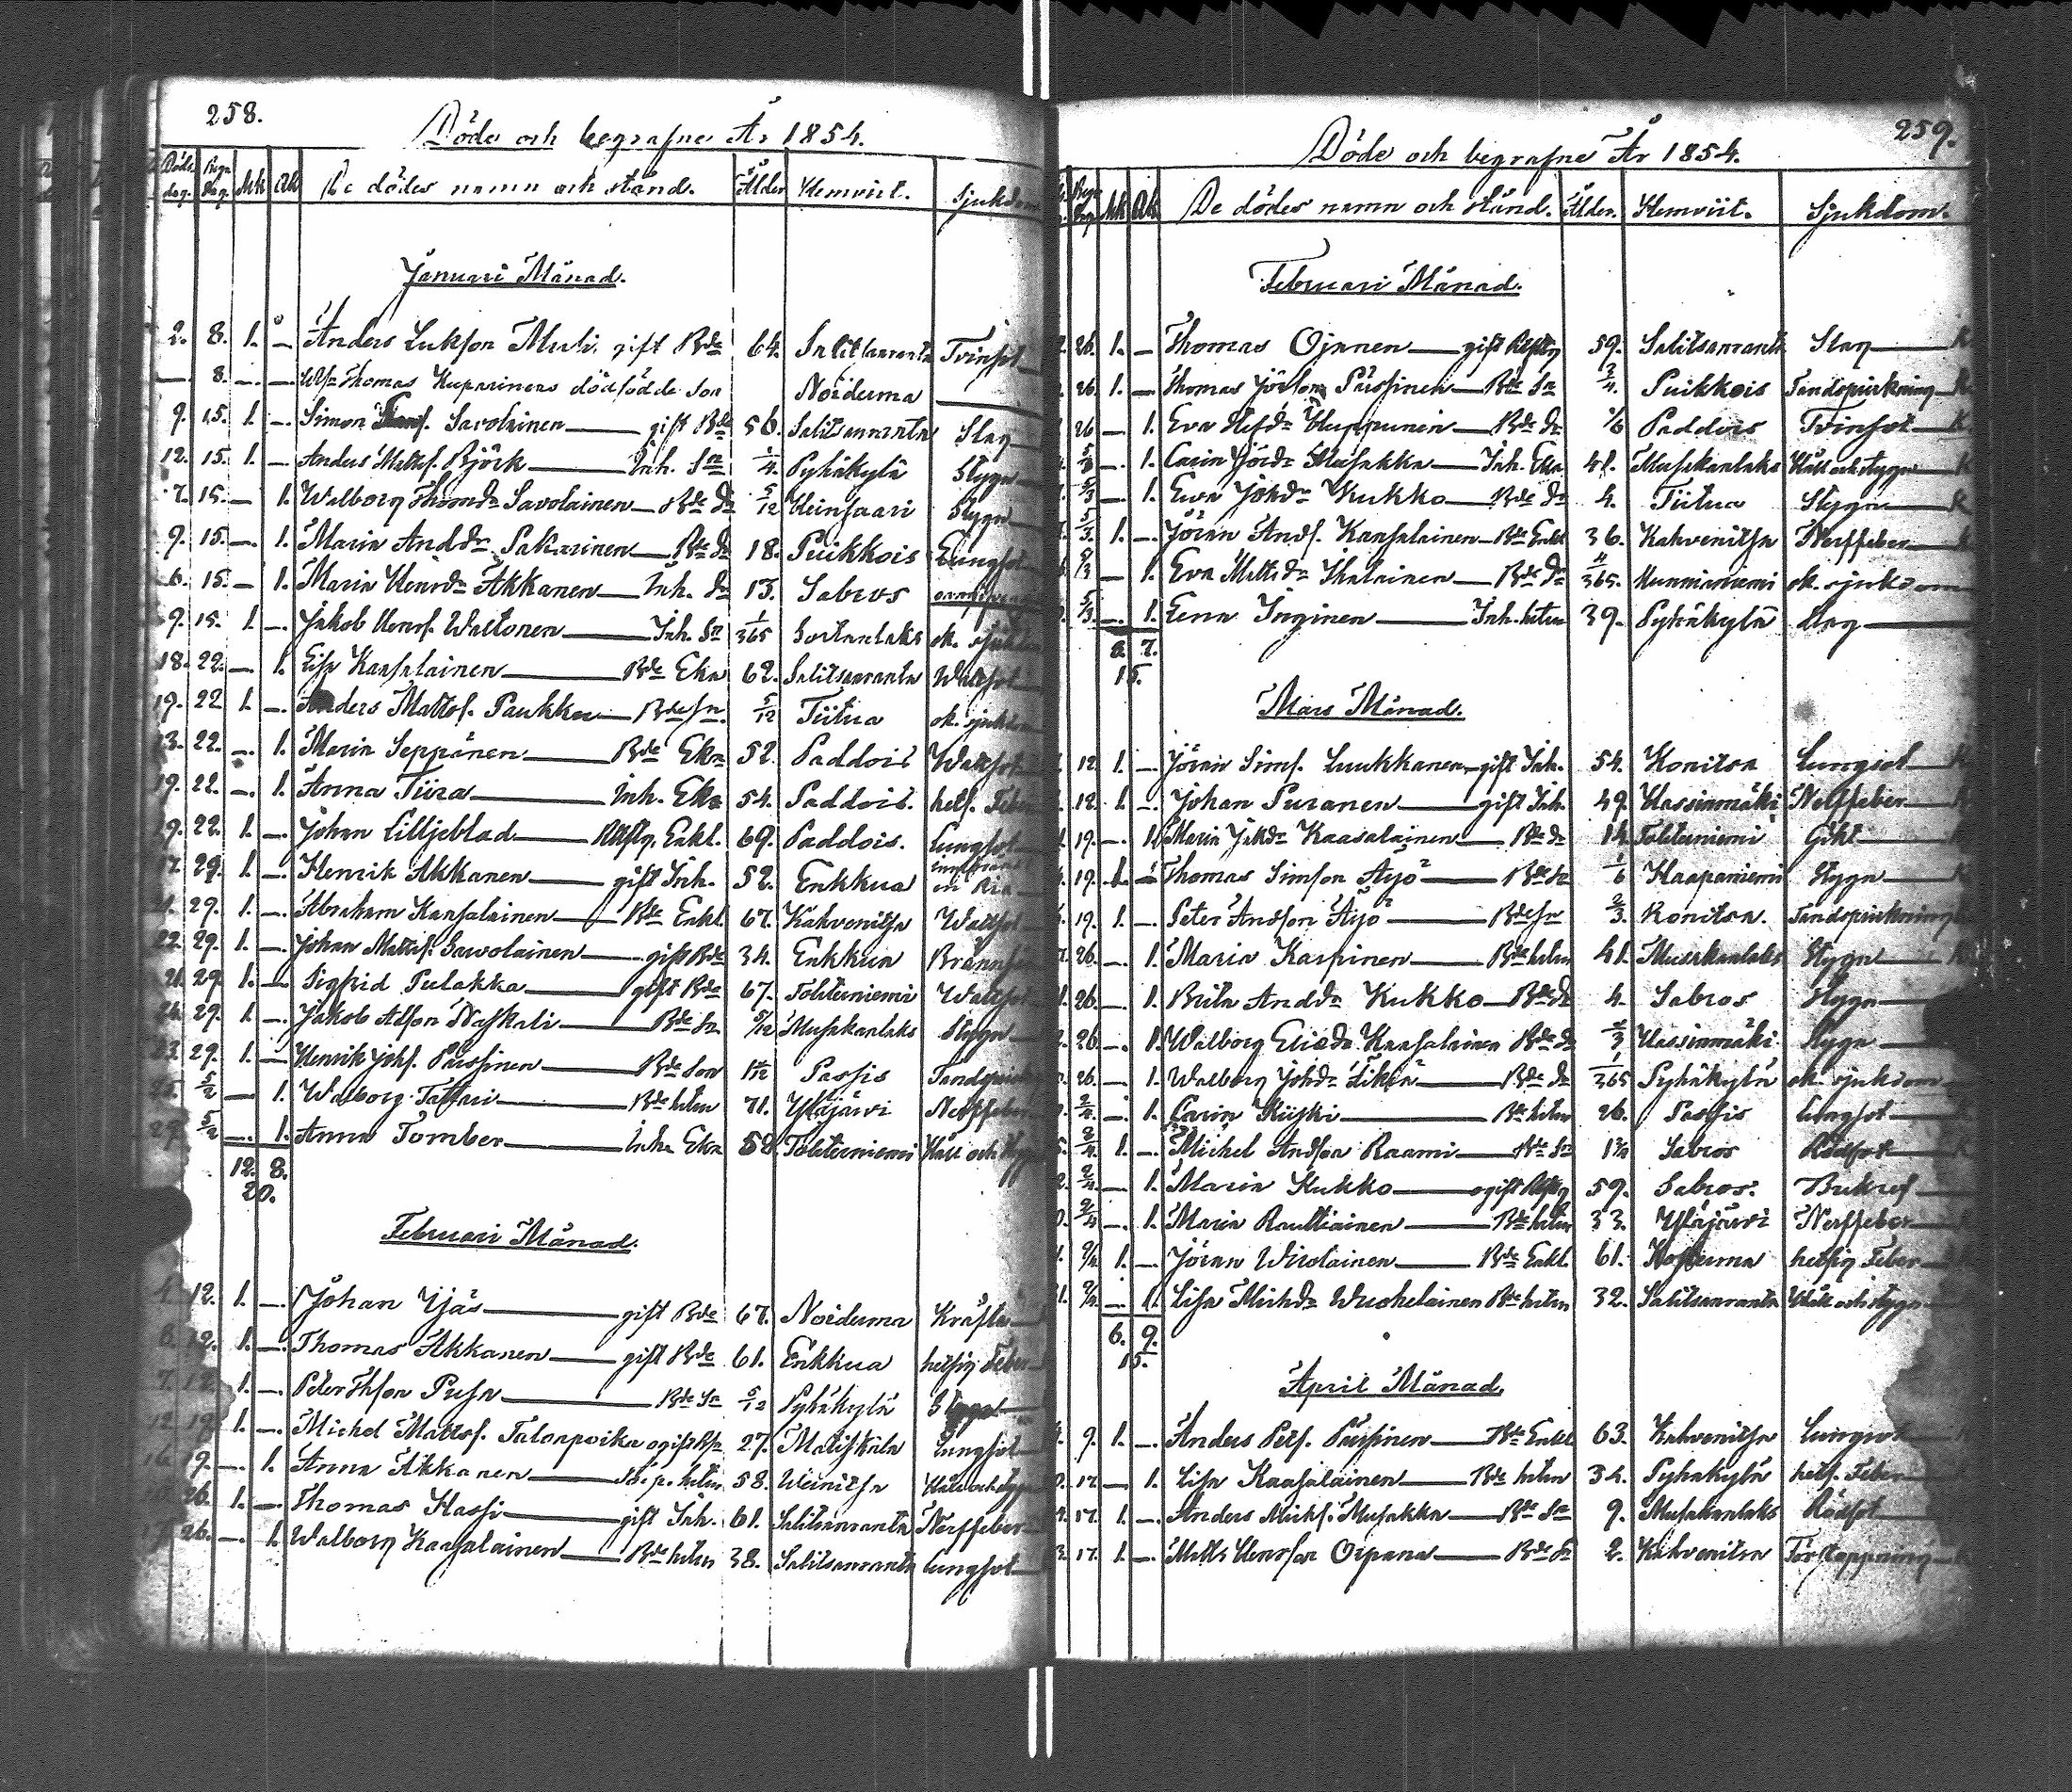 258.
Döde och begrafne År 1854.
Döds dag. Begr. dag. Mk Qk De dödes namn och stånd. Ålder Hemvist. Sjukdom
Januari Månad.
2. 8. 1. — Anders Lukson Muli, gift Bde 64. Salitsanranta Tvinsot
— 8. — — Thomas Kuparinens dödfödde Son Noiderma
9. 15. 1. — Simon Savolainen — gift Bde 56. Salitsanranta Slag
12. 15. 1. — Anders Mattsf. Björk — Inh. Sn 1/4. Pyhäkylä Stygn
7. 15. — 1. Walborg Thomdr Savolainen — Bde dr 5/12 Heinsaari Stygn
9. 15. — 1. Maria Anddr Pakarinen — Bde dr 18. Puikkois Lungsot
6. 15. — 1. Maria Henrdr Akkanen — Inh. dr 13. Sabros
9. 15. 1. — Jakob Henrsf. Waltonen — Inh. Sn 1/365 Sortanlaks ok. sjukdom
18. 22. — 1. Lisa Kaasalainen — Bde Eka 62. Salitsanranta Wattsot
19. 22 1. — Anders Mattsf. Paukku — Bde sn. 5/12 Tiitua ok. sjukdom
13. 22. — 1. Maria Seppänen — Bde Eka 52. Paddois Wattsot
19. 22. — 1. Anna Tiira — Inh. Eka 54. Paddois. hets. Feber
19. 22. 1. — Johan Lilljeblad — Enkl. 69. Paddois. Lungsot
17. 29. 1. — Henrik Akkanen — gift Inh. 52. Enkkua
21. 29. 1. — Abraham Kaasalainen — Bde Enkl. 67. Kahvenitsa Wattsot
22. 29. 1. — Johan Mattsf. Savolainen — gift Bde 34. Enkkua
21. 29. 1. — Sigfrid Pulakka — gift Bde 67. Tolsterniemi Wattsot
24. 29. 1. — Jakob Adfson Naskali — Bde Sn 5/12 Musakanlaks Stygn
23. 29. 1. — Henrik Johsf. Pärssinen — Bde Son Passis
25. 5/2 — 1. Walborg Tattari — Bde hstru 71. Yläjärvi Nerffeber
29. 5/2 — 1. Anna Tomber — Inh. Eka 58 Tolsterniemi Håll och Stygn
12. 8.
20.
Februari Månad.
12. 1. — Johan Yjäs — gift Bde 67. Noiderma Kräfta
6. 12. 1. — Thomas Akkanen — gift Bde 61. Enkkua hetsig Feber
7. 12. 1. — Peter Thfson Pusa — Bde Sn 5/12 Pyhäkylä Stygn
12. 19. 1. — Michel Mattsf. Talonpoika ogift 27. Lungsot
16. 19. — 1. Anna Akkanen — hstru 58. Weinitsa Håll och stygn
26. 1. — Thomas Hassi — gift Inh. 61. Salitsanranta Nerffeber
17. 26. — 1. Walborg Kaasalainen — Bde hstru 38. Salitsanranta Lungsot
259.
Döde och begrafne År 1854.
Begr. Dag Mk Qk De dödes namn och stånd. Ålder. Hemvist. Sjukdom.
Februari Månad.
26. 1. — Thomas Ojanen — gift 59. Salitsanranta Slag
26. 1. — Thomas Jörson Pärssinen — Bde Sn 3/4. Puikkois Tandsprickning
26 — 1. Eva Huppunen — Bde dr 1/6 Paddois Tvinsot
5/3 — 1. Carin Jördr Musakka — Inh. Eka 41. Musakanlaks Håll och stygn
5/3 — 1. Ewa Johdr Kukko — Bde dr 4. Tiitua Stygn
5/3. 1. — Jöran Andsf. Kaasalainen — Bde Enkl 36. Kahvenitsa Nerffeber
5/3 — 1. Eva Mattsdr Ihalainen — Bde dr 4/365. Hunnianiemi ok. sjukdom
5/3. — 1. Lena Inginen — Inh. hstru 39. Pyhäkylä Slag
8. 7.
15.
Mars Månad.
12. 1. — Jöran Simsf. Luukkanen — gift Inh. 54. Konitsa Lungsot
12. 1. — Johan Puranen — gift Inh. 49. Hassinmäki Nerffeber
19. — 1. Maria Jakdr Kaasalainen — Bde dr 14. Tolsterniemi Gikt
19. 1. — Thomas Simson Äijö — Bde Sn 1/6 Haapaniemi Stygn
19. 1. — Peter Andson Äijö — Bde sn 2/3. Konitsa. Tandsprickning
26. — 1. Maria Karpinen — Bde hstru 41. Musakanlaks Stygn
26. — 1. Brita Anddr Kukko — Bde dr 4. Sabros Stygn
26. — 1. Walborg Eliædr Kaasalainen Bde dr Hassinmäki. Stygn
26. — 1. Walborg Johdr Tikka — Bde dr 1/365 Pyhäkylä ok. sjukdom
2/4. — 1. Carin Kiiski — Bde hstru 26. Passis Lungsot
2/4. 1. — Michel Andson Raami — Bde Sn 1 3/4 Sabros Rödsot
2/4. — 1. Maria Kukko — ogift 59. Sabros. Bukref
2/4 — 1. Maria Rauttiainen — Bde hstru 33. Yläjärvi Nerffeber
9/4 1. — Jöran Wirolainen — Bde Enkl. 61. Kosterma hetsig Feber
9/4 — 1. Lisa Michdr Wuohelainen Bde hstru 32. Salitsanranta Håll och stygn
6. 9.
15.
April Månad.
9. 1. — Anders Petsf. Pärssinen — Bde Enkl 63. Kahvenitsa Lungsot
17. — 1. Lisa Kaasalainen — Bde hstru 34. Pyhäkylä hets. Feber
17. 1. — Anders Michsf. Musakka — Bde Sn 9. Musakanlaks Rödsot
17. 1. — Matts Henrson Orpana — Bde Sn 2. Kahvenitsa Förstoppning